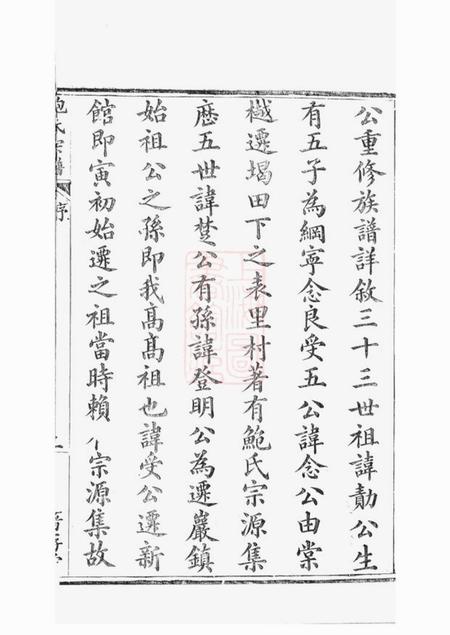 公重修族譜詳敘三十三世祖諱勣公生
有五子為綱寧念良受五公諱念公由棠
樾遷堨田下之表里村著有鮑氏宗源集
歷五世諱椘公有孫諱登明公為遷巖鎮
始祖公之孫即我髙髙祖也諱受公遷新
館即寅初始遷之祖當時賴 宗源集故
鮑氏宗譜
序